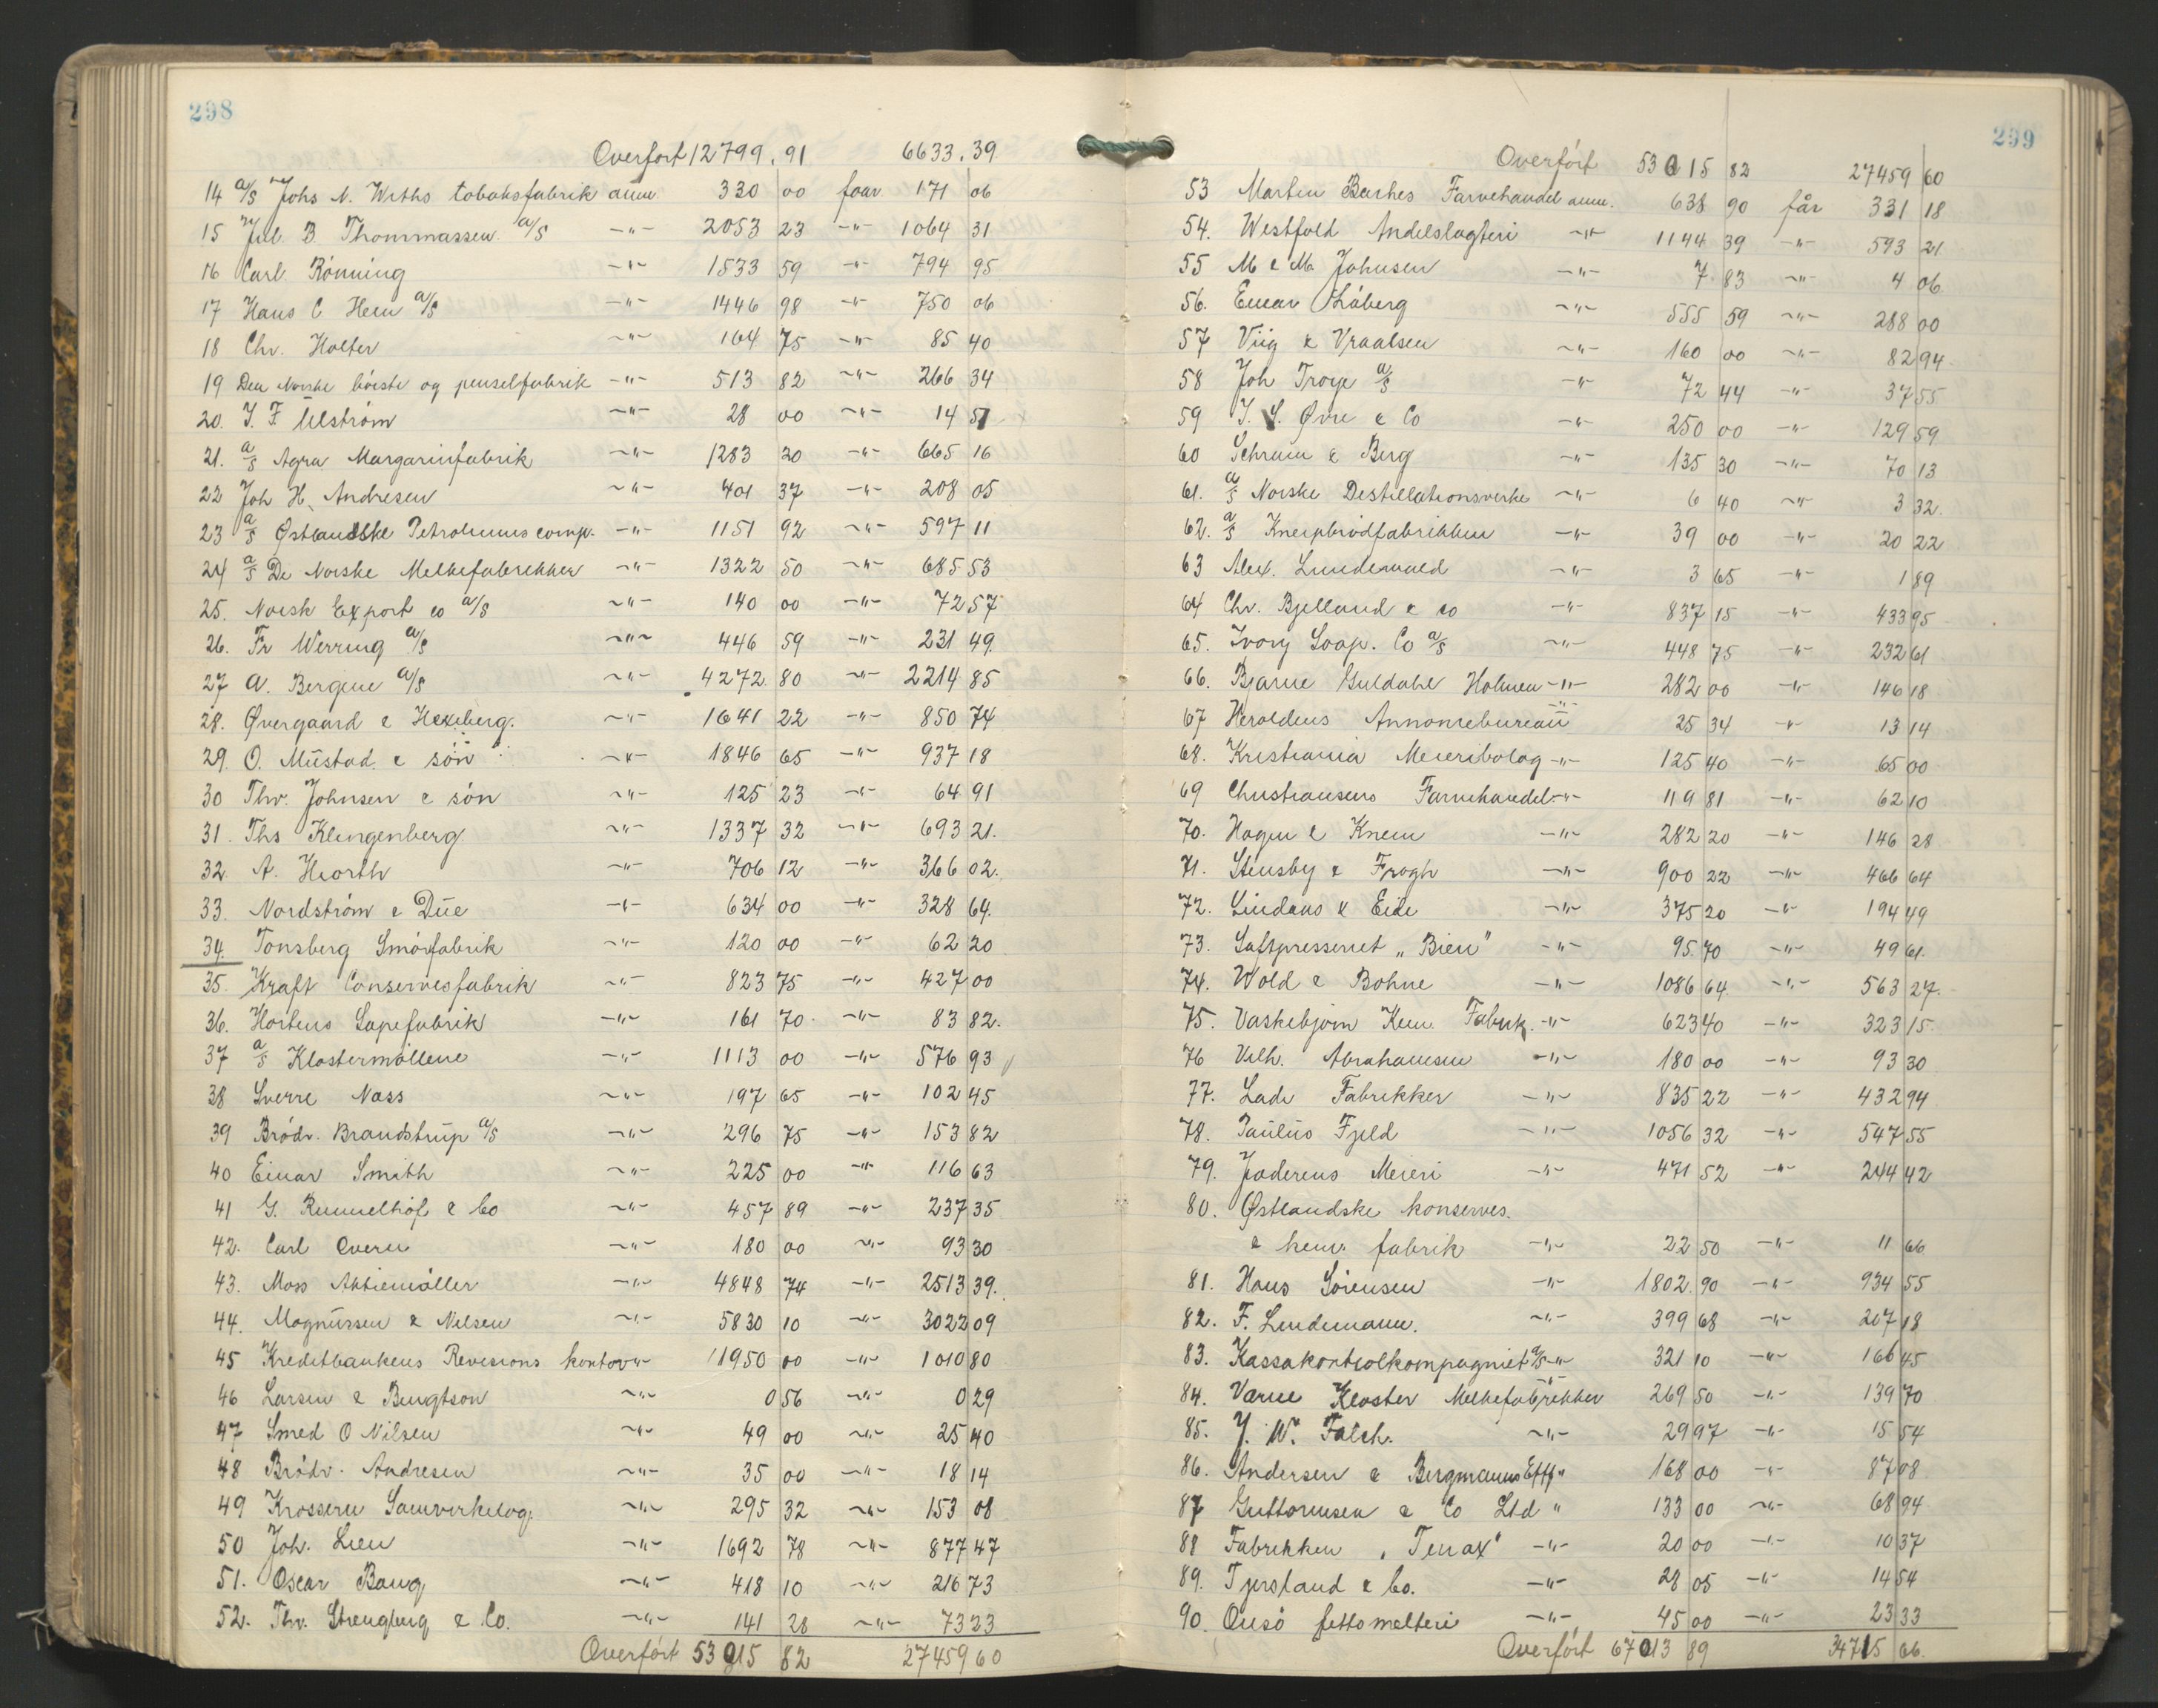 298
Overført 12799.91 6633.39
14 a/s Johs N. Withs tobaksfabrik anm. 330 00 faar 171 06
15 Jul. B. Thommassen a/s -"- 2053 23 -"- 1064 31
16 Carl Rönning -"- 1533 59 -"- 794 95
17 Hans C Hem a/s -"- 1446 98 -"- 750 06
18 Chr. Holter -"- 164 75 -"- 85 40
19 Den Norske börste og penselfabrik -"- 513 82 -"- 266 34
20. J. F. Ulström -"- 28 00 -"- 14 51
21. a/s Agra Margarinfabrik -"- 1283 20 -"- 665 16
22 Joh H. Andresen -"- 401 37 -"- 208 05
23 a/s Østlandske Petroleums comp. -"- 1151 92 -"- 597 11
24 a/s De Norske Melkefabrikker -"- 1322 50 -"- 685 53
25. Norsk Export co a/s -"- 140 00 -"- 72 57
26. Fr Werring a/s -"- 446 59 -"- 231 49
27 A. Bergene a/s -"- 4272 80 -"- 2214 85
28. Øvergaard & Hexeberg. -"- 1641 22 -"- 850 74
29. O. Mustad & sön -"- 1846 65 -"- 937 18
30 Thv. Johnsen & sön -"- 125 23 -"- 64 91
31. Ths Klingenberg -"- 1337 32 -"- 693 21.
32. A. Hiorth -"- 706 12 -"- 366 02.
33. Nordström & Due -"- 634 00 -"- 328 64.
34. Tonsberg Smörfabrik -"- 120 00 -"- 62 20
35. Kraft Conservesfabrik -"- 823 75 -"- 427 00
36. Hortens Sapefabrik -"- 161 70 -"- 83 82.
37 a/s Klostermöllene -"- 1113 00 -"- 576 93
38 Sverre Nass -"- 197 65 -"- 102 45
39 Brödr. Brandstrup a/s -"- 296 75 -"- 153 82
40 Einar Smith -"- 225 00 -"- 116 63
41 G. Rummelhof & Co -"- 457 89 -"- 237 35
42. Carl Overn -"- 180 00 -"- 93 30
43. Moss Aktiemöller -"- 4848 74 -"- 2513 39.
44. Magnussen & Nilsen -"- 5830 10 -"- 3022 09
45 Kreditbankens Revisions kontor -"- 1950 00 -"- 1010 80
46 Larsen & Bengtson -"- 0 56 -"- 0 29
47 Smed O Nilsen -"- 49 00 -"- 25 40
48 Brödr. Andresen -"- 35 00 -"- 18 14
49 Krosseren Samvirkelag. -"- 295 32 -"- 153 08
50 Joh. Lien -"- 1692 78 -"- 877 47
51. Oscar Baug -"- 418 10 -"- 216 73
52. Thv. Strengberg & Co. -"- 141 28 -"- 73 23
Overført 53015 82 27459 60
299
Overført 53015 82 27459 60
53 Martin Barhes Farvehandel anm. 638 90 får 331 18
54. Westfold Andelslagteri -"- 1144 39 -"- 593 21
55 M & M Johnsen -"- 7 83 -"- 4 06
56. Einar Låberg -"- 555 59 -"- 288 00
57 Viig & Vraalsen -"- 160 00 -"- 82 94
58 Joh Troye a/s -"- 72 44 -"- 37 55
59 J. S. Øvre & Co -"- 250 00 -"- 129 59
60 Schram & Berg -"- 135 30 -"- 70 13
61. a/s Norske Destillationsverke -"- 6 40 -"- 3 32.
62. a/s Kneipbrödfabrikken -"- 39 00 -"- 20 22
63 Alex. Lundervald -"- 3 65 -"- 1 89
64 Chr. Bjelland & co -"- 837 15 -"- 433 95
65. Ivory Soap. Co a/s -"- 448 75 -"- 232 61
66. Bjarne Guldahl Holmen -"- 282 00 -"- 146 18
67 Heroldens Annonsebureau -"- 25 34 -"- 13 14
68. Kristiania Meieribolag -"- 125 40 -"- 65 00
69 Christiansens Farvehandel -"- 119 81 -"- 62 10
70. Hagen & Knem -"- 282 20 -"- 146 28
71. Stensby & Frogh -"- 900 22 -"- 466 64
72. Lindaas & Eide -"- 375 20 -"- 194 49
73. Saftpresseriet „Bien" -"- 95.70 -"- 49 61.
74. Wold & Bohne -"- 1086 64 -"- 563 27.
75. Vaskebjörn Kem. Fabrik. -"- 623 40 -"- 323 15
76 Vilh. Abrahamsen -"- 180 00 -"- 93 30
77. Lade Fabrikker -"- 835 22 -"- 432 94
78. Paulus Fjeld -"- 1056 32 -"- 547 55
79. Jæderens Meieri -"- 471 52 -"- 244 42
80. Østlandske konserves.
& kem. fabrik -"- 22 50 -"- 11 66
81. Hans Sörensen -"- 1802 90 -"- 934 55
82. F. Lindemann. -"- 399 68 -"- 207 18
83. Kassakontrolkompagniet a/s -"- 321 10 -"- 166 45
84. Varne Kloster Melkefabrikker -"- 269 50 -"- 139 70
85. Y. W. Falch. -"- 29 97 -"- 15 54
86. Andersen & Bergmanns Eftf " 168 00 -"- 87 08
87 Guttormsen & Co Ltd " 133 00 -"- 68 94
88 Fabrikken „Tenax" -"- 20 00 -"- 10 37
89. Tjersland & Co. -"- 28 05 -"- 14 54
90. Onsö fettsmelteri -"- 45 00 -"- 23 33
Overført 67013 89 34715 66.